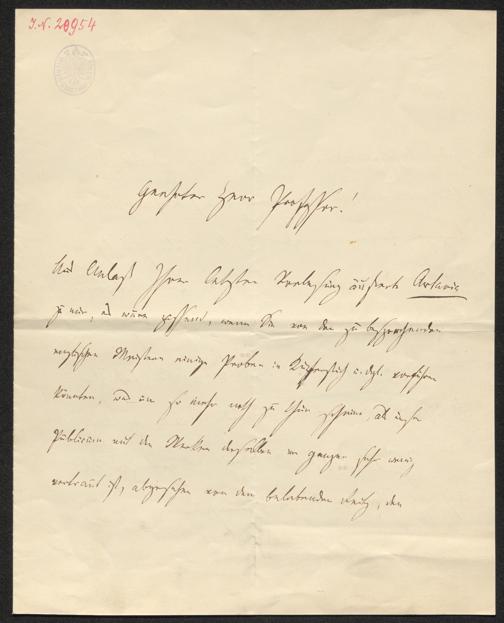 I.N. 20954
Geehrter Herr Professor!
Aus Anlaß Ihrer letzten Vorlesung äußerte Artaria
zu mir, es wäre passend, wenn Sie von den zu besprechenden
englischen Meistern einige Proben in Kupferstich u. dgl. vorführen
könnten, was um so mehr noth zu thun scheine, als unser
Publicum mit den Werken derselben im ganzen sehr wenig
vertraut ist, abgesehen von dem belebenden Reitz, den